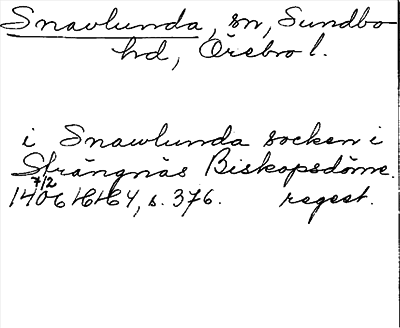 Snavlunda, sn, Sundbo
hd, Örebro l.
i Snawlunda socken i
Strängnäs Biskopsdöme.
7/2
1406 s. 376. regest.